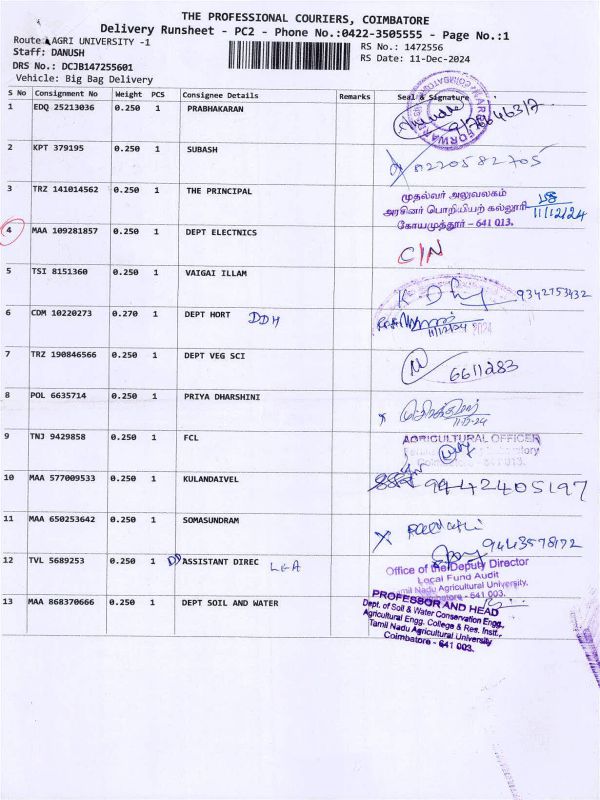 THE PROFESSIONAL COURIERS, COIMBATORE
Delivery Runsheet - PC2 - Phone No.:0422-3505555 - Page No.:1
Route: AGRI UNIVERSITY -1
Staff: DANUSH
RS No.: 1472556
DRS No.: DCJB147255601
RS Date: 11-Dec-2024
Vehicle: Big Bag Delivery
S No Consignment No Weight PCS Consignee Details Remarks Seal & Signature
1 EDQ 25213036 0.250 1 PRABHAKARAN
2 KPT 379195 0.250 1 SUBASH
3 TRZ 141014562 0.250 1 THE PRINCIPAL
முதல்வர் அலுவலகம்
அரசினர் பொறியியற் கல்லூரி
11/12/24
கோயமுத்தூர் - 641 013.
4 MAA 109281857 0.250 1 DEPT ELECTNICS C/N
5 TSI 8151360 0.250 1 VAIGAI ILLAM
9342753432
6 CDM 10220273 0.270 1 DEPT HORT DDH
11/12/24 2024
7 TRZ 190846566 0.250 1 DEPT VEG SCI
6611283
8 POL 6635714 0.250 1 PRIYA DHARSHINI
9 TNJ 9429858 0.250 1 FCL
AGRICULTURAL OFFICER
10 MAA 577009533 0.250 1 KULANDAIVEL
9442405197
11 MAA 650253642 0.250 1 SOMASUNDRAM
9443578172
12 TVL 5689253 0.250 1 DD ASSISTANT DIREC LFA
Office of the Deputy Director
Local Fund Audit
Tamil Nadu Agricultural University,
Coimbatore - 641 003.
13 MAA 868370666 0.250 1 DEPT SOIL AND WATER
PROFESSOR AND HEAD
Dept. of Soil & Water Conservation Engg.,
Agricultural Engg. College & Res. Instt.,
Tamil Nadu Agricultural University
Coimbatore - 641 003.